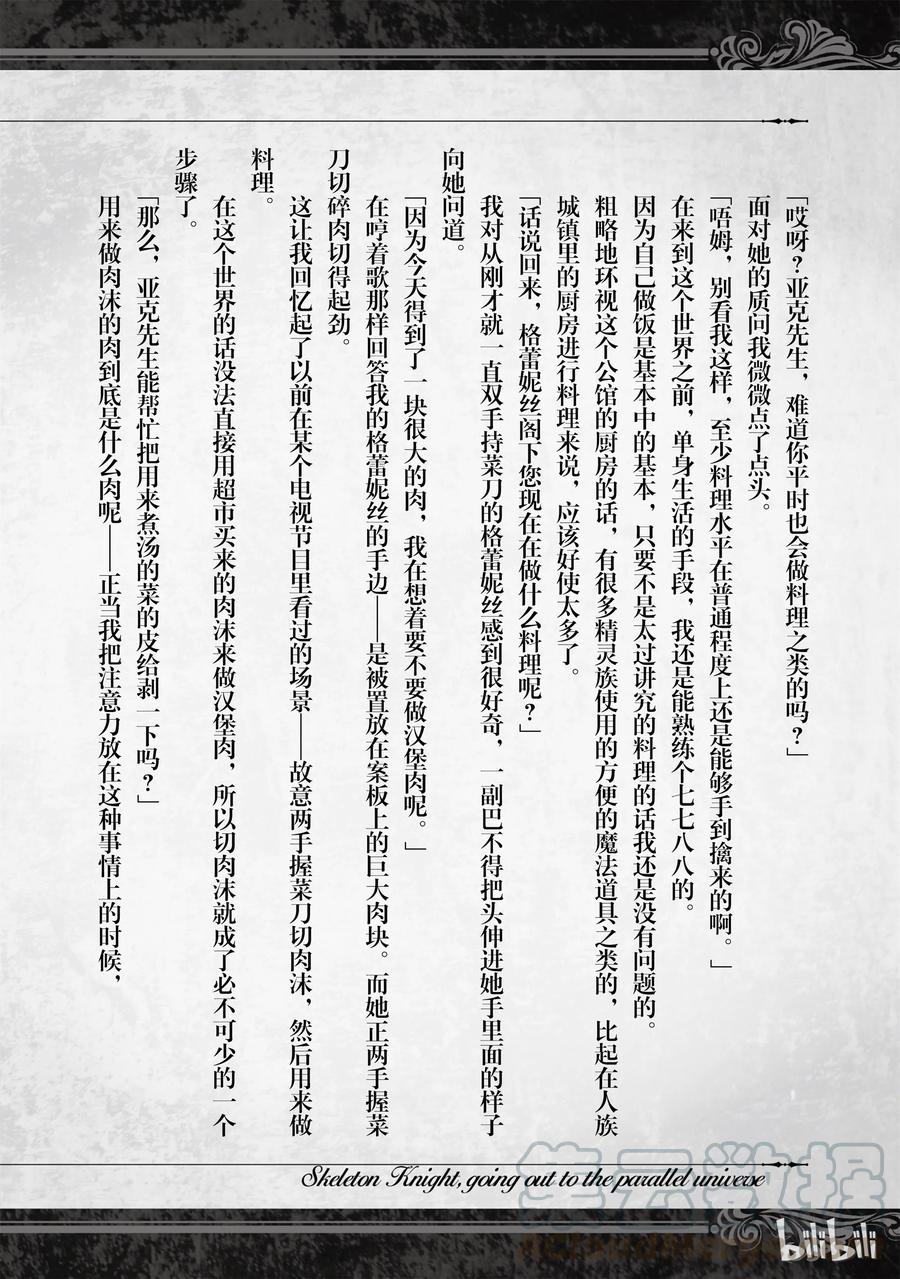 「哎呀？亚克先生，难道你平时也会做料理之类的吗？」
面对她的质问我微微点了点头。
「唔姆，别看我这样，至少料理水平在普通程度上还是能够手到擒来的啊。」
在来到这个世界之前，单身生活的手段，我还是能熟练个七七八八的。
因为自己做饭是基本中的基本，只要不是太过讲究的料理的话我还是没有问题的。
粗略地环视这个公馆的厨房的话，有很多精灵族使用的方便的魔法道具之类的，比起在人族
城镇里的厨房进行料理来说，应该好使太多了。
「话说回来，格蕾妮丝阁下您现在在做什么料理呢？」
我对从刚才就一直双手持菜刀的格蕾妮丝感到很好奇，一副巴不得把头伸进她手里面的样子
向她问道。
「因为今天得到了一块很大的肉，我在想着要不要做汉堡肉呢。」
在哼着歌那样回答我的格蕾妮丝的手边——是被置放在案板上的巨大肉块。而她正两手握菜
刀切碎肉切得起劲。
这让我回忆起了以前在某个电视节目里看过的场景——故意两手握菜刀切肉沫，然后用来做
料理。
在这个世界的话没法直接用超市买来的肉沫来做汉堡肉，所以切肉沫就成了必不可少的一个
步骤了。
「那么，亚克先生能帮忙把用来煮汤的菜的皮给剥一下吗？」
用来做肉沫的肉到底是什么肉呢——正当我把注意力放在这种事情上的时候，
Skeleton Knight, going out to the parallel universe
bilibili